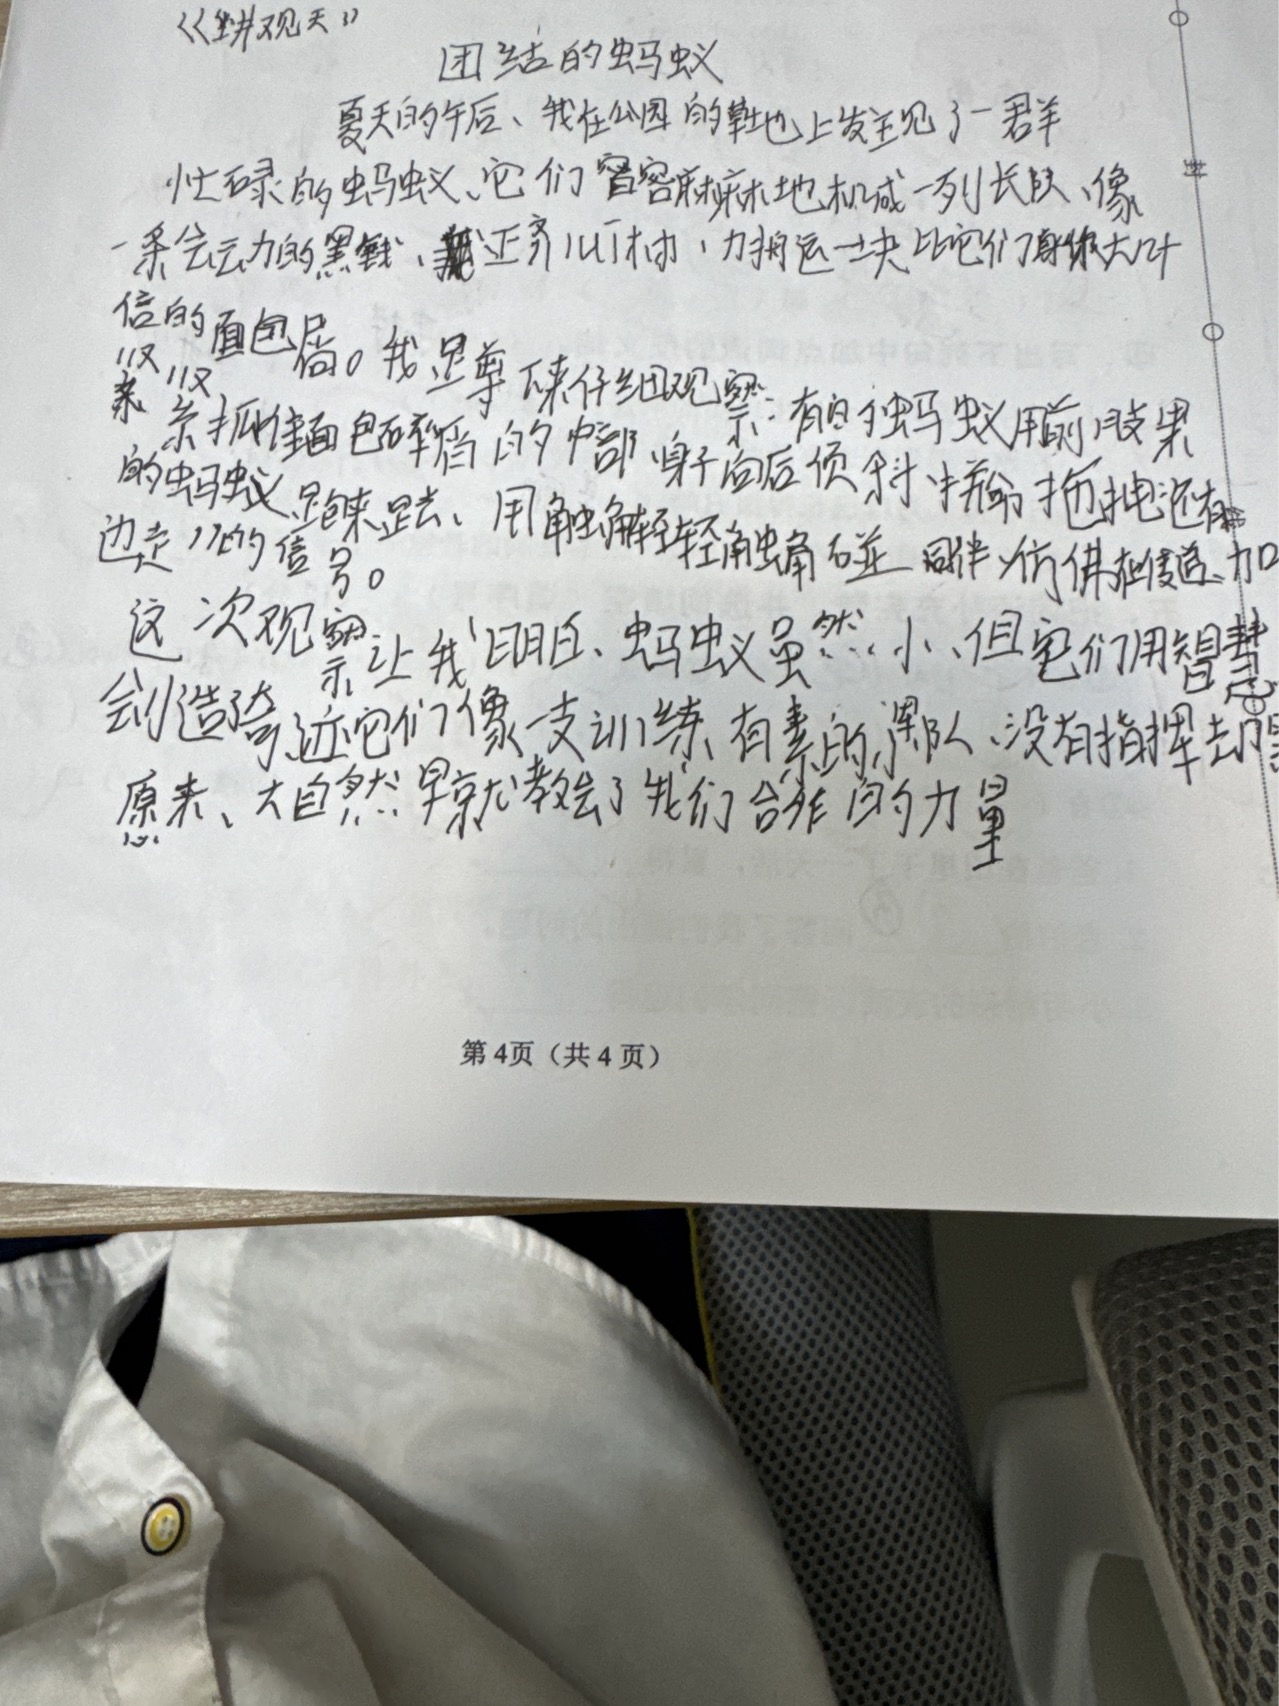 《坐井观天》
团结的蚂蚁
夏天的午后、我在公园的草地上发现了一群
忙碌的蚂蚁、它们密密麻麻地机成一列长队、像
一条会云力的黑线、正齐 力拥运一块比它们身体大几十
倍的面包屑。我是尊下来仔细观察:有的独蚂蚁用前肢果
紧紧抓住面包碎屑的中部、身子向后倾斜、拼命拖拽还有
的蚂蚁跑来跑去、用触角轻轻触角碰同伴、仿佛在传递、加
边走 的信号。
这次观察让我明白、蚂蚁虽然小、但它们用智慧
创造奇迹它们像一支训练有素的军队、没有指挥去
原来、大自然早就教会了我们合作的力量
第4页(共4页)